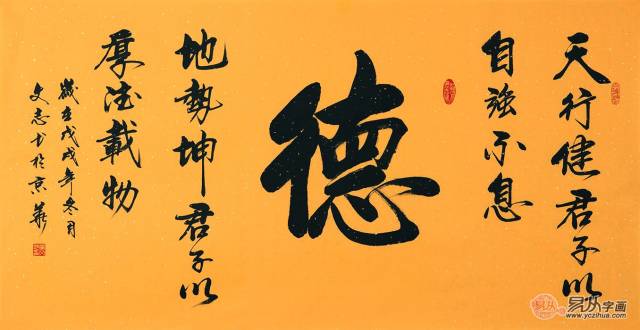 天行健君子以
自強不息
德
地勢坤君子以
厚德載物
歲在戊戌年冬月
文志书於京華
易从字画
www.yczihua.com